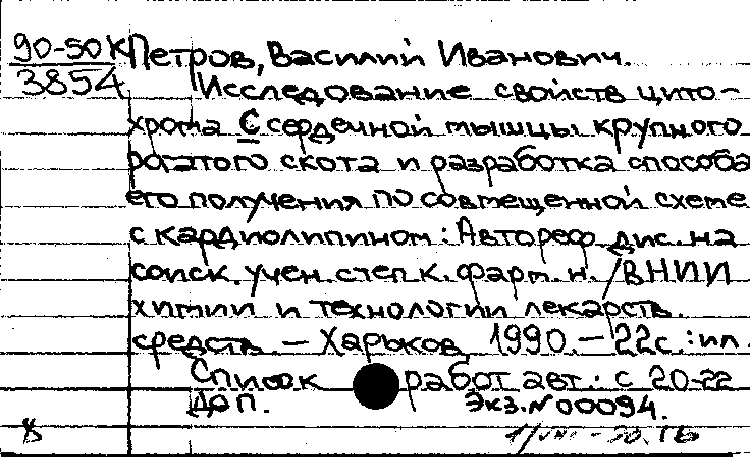 90-50К Петров, Василий Иванович.
3854 Исследование свойств цито-
хрома С сердечной мышцы крупного
рогатого скота и разработка способа
его получения по совмещенной схеме
с кардиолипином: Автореф. дис. на
соиск. учен. степ. к. фарм. н. / ВНИИ
химии и технологии лекарств.
средств. – Харьков 1990. – 22с.: ил.
Список работ авт.: с 20-22
ДСП. Экз. N 00094.